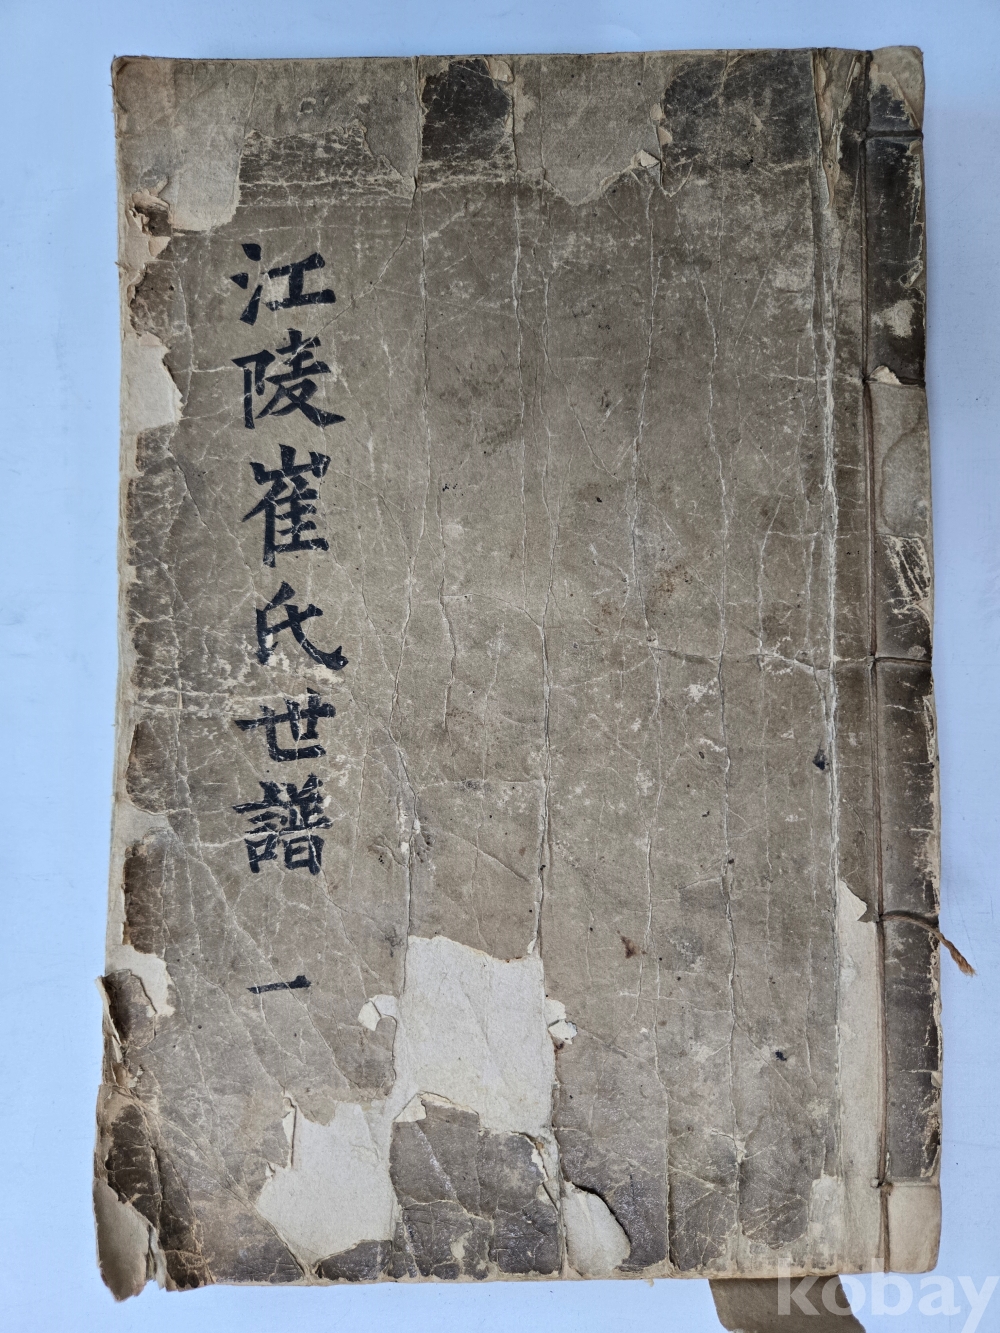 江陵崔氏世譜 一
kobay